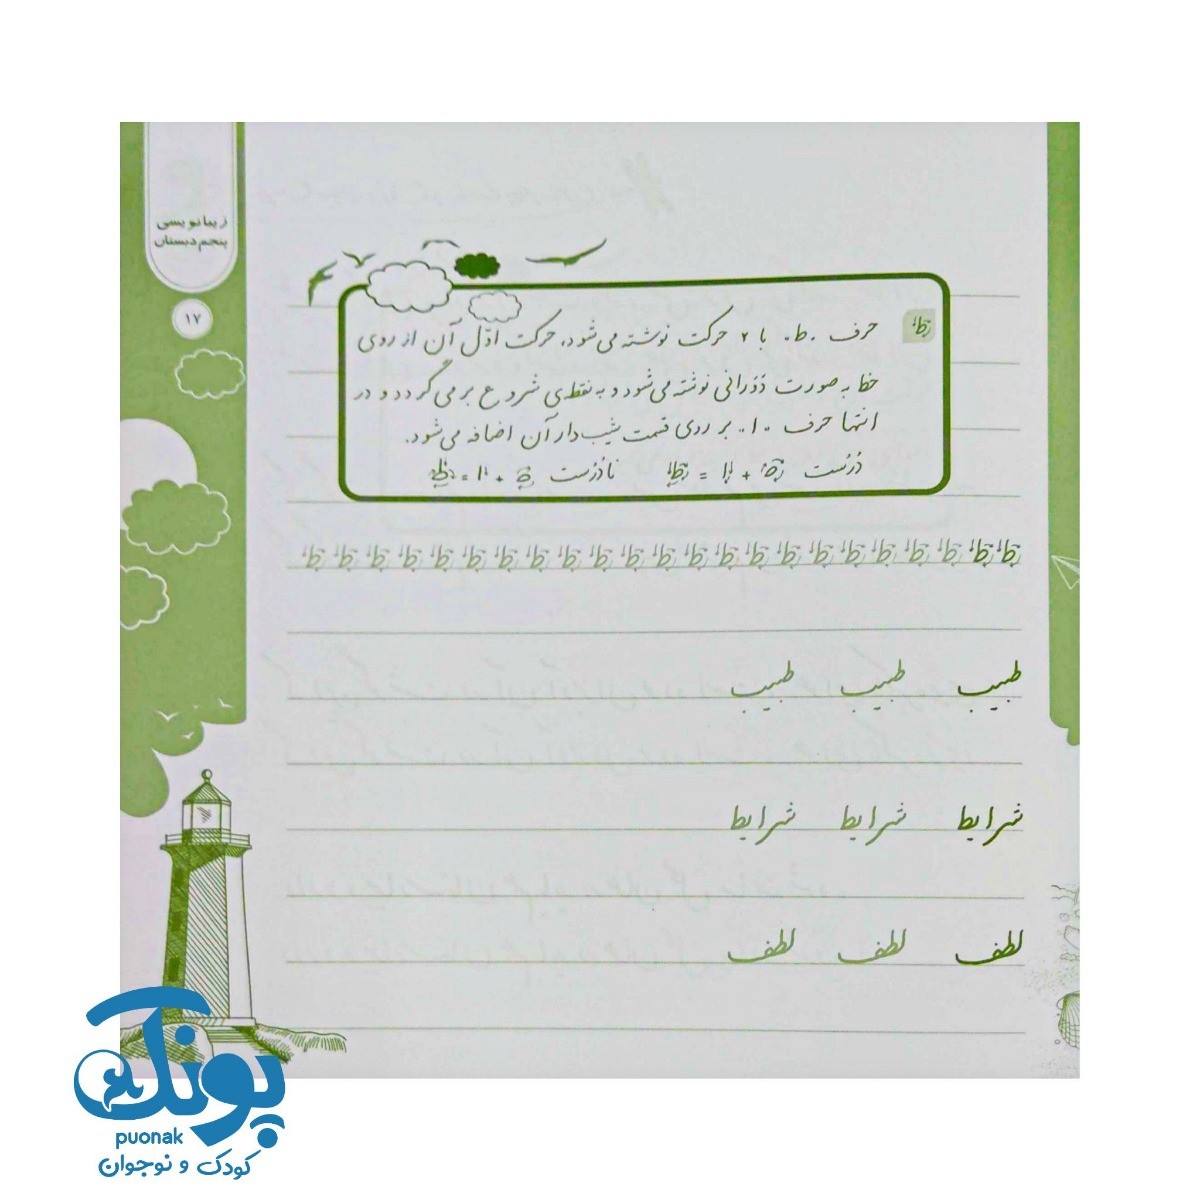 زیبانویسی
پنجم دبستان
۱۷
ط
حرف «ط» با ۲ حرکت نوشته می‌شود. حرکت اوّل آن از روی
خط به صورت دَوَرانی نوشته می‌شود و به نقطه‌ی شروع برمی‌گردد و در
انتها حرف «ا» بر روی قسمت شیب‌دار آن اضافه می‌شود.
دُرُست ص + ا = ط نادُرُست ه + ا = ط
ط ط ط ط ط ط ط ط ط ط ط ط ط ط ط ط ط ط ط ط ط ط ط
طبیب طبیب طبیب
شرایط شرایط شرایط
لطف لطف لطف
پونک
puonak
کودک و نوجوان